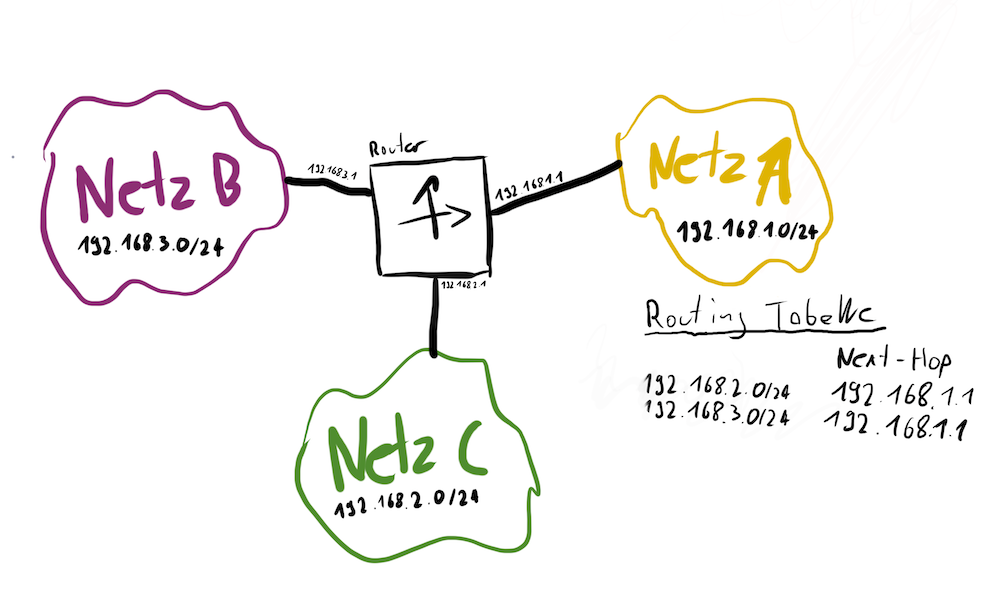 Router
Netz B
192.168.3.0/24
192.168.3.1
192.168.1.1
Netz A
192.168.1.0/24
192.168.2.1
Netz C
192.168.2.0/24
Routing Tabelle
Next-Hop
192.168.2.0/24 192.168.1.1
192.168.3.0/24 192.168.1.1